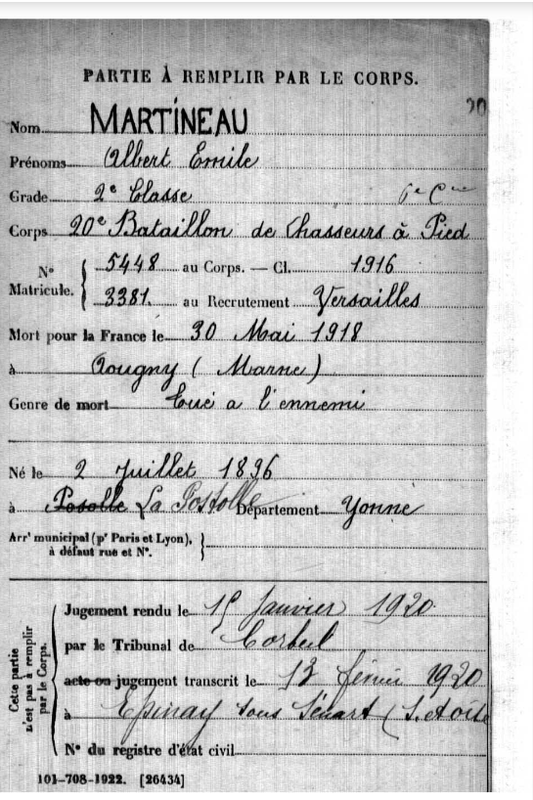 PARTIE À REMPLIR PAR LE CORPS.
20
Nom MARTINEAU
Prénoms Albert Emile
Grade 2e Classe 6e Cie
Corps 20e Bataillon de Chasseurs à Pied
No Matricule. { 5448 au Corps. — Cl. 1916
3381 au Recrutement Versailles
Mort pour la France le 30 Mai 1918
à Aougny ( Marne )
Genre de mort Tué a l'ennemi
Né le 2 Juillet 1896
à Posolle La Postolle Département Yonne
Arrt municipal (pr Paris et Lyon), à défaut rue et No. }
Cette partie n'est pas à remplir par le Corps.
Jugement rendu le 15 Janvier 1920
par le Tribunal de Corbeil
acte ou jugement transcrit le 13 février 1920
à Epinay sous Sénart (S. et Oise
No du registre d'état civil
101-708-1922. [26434]